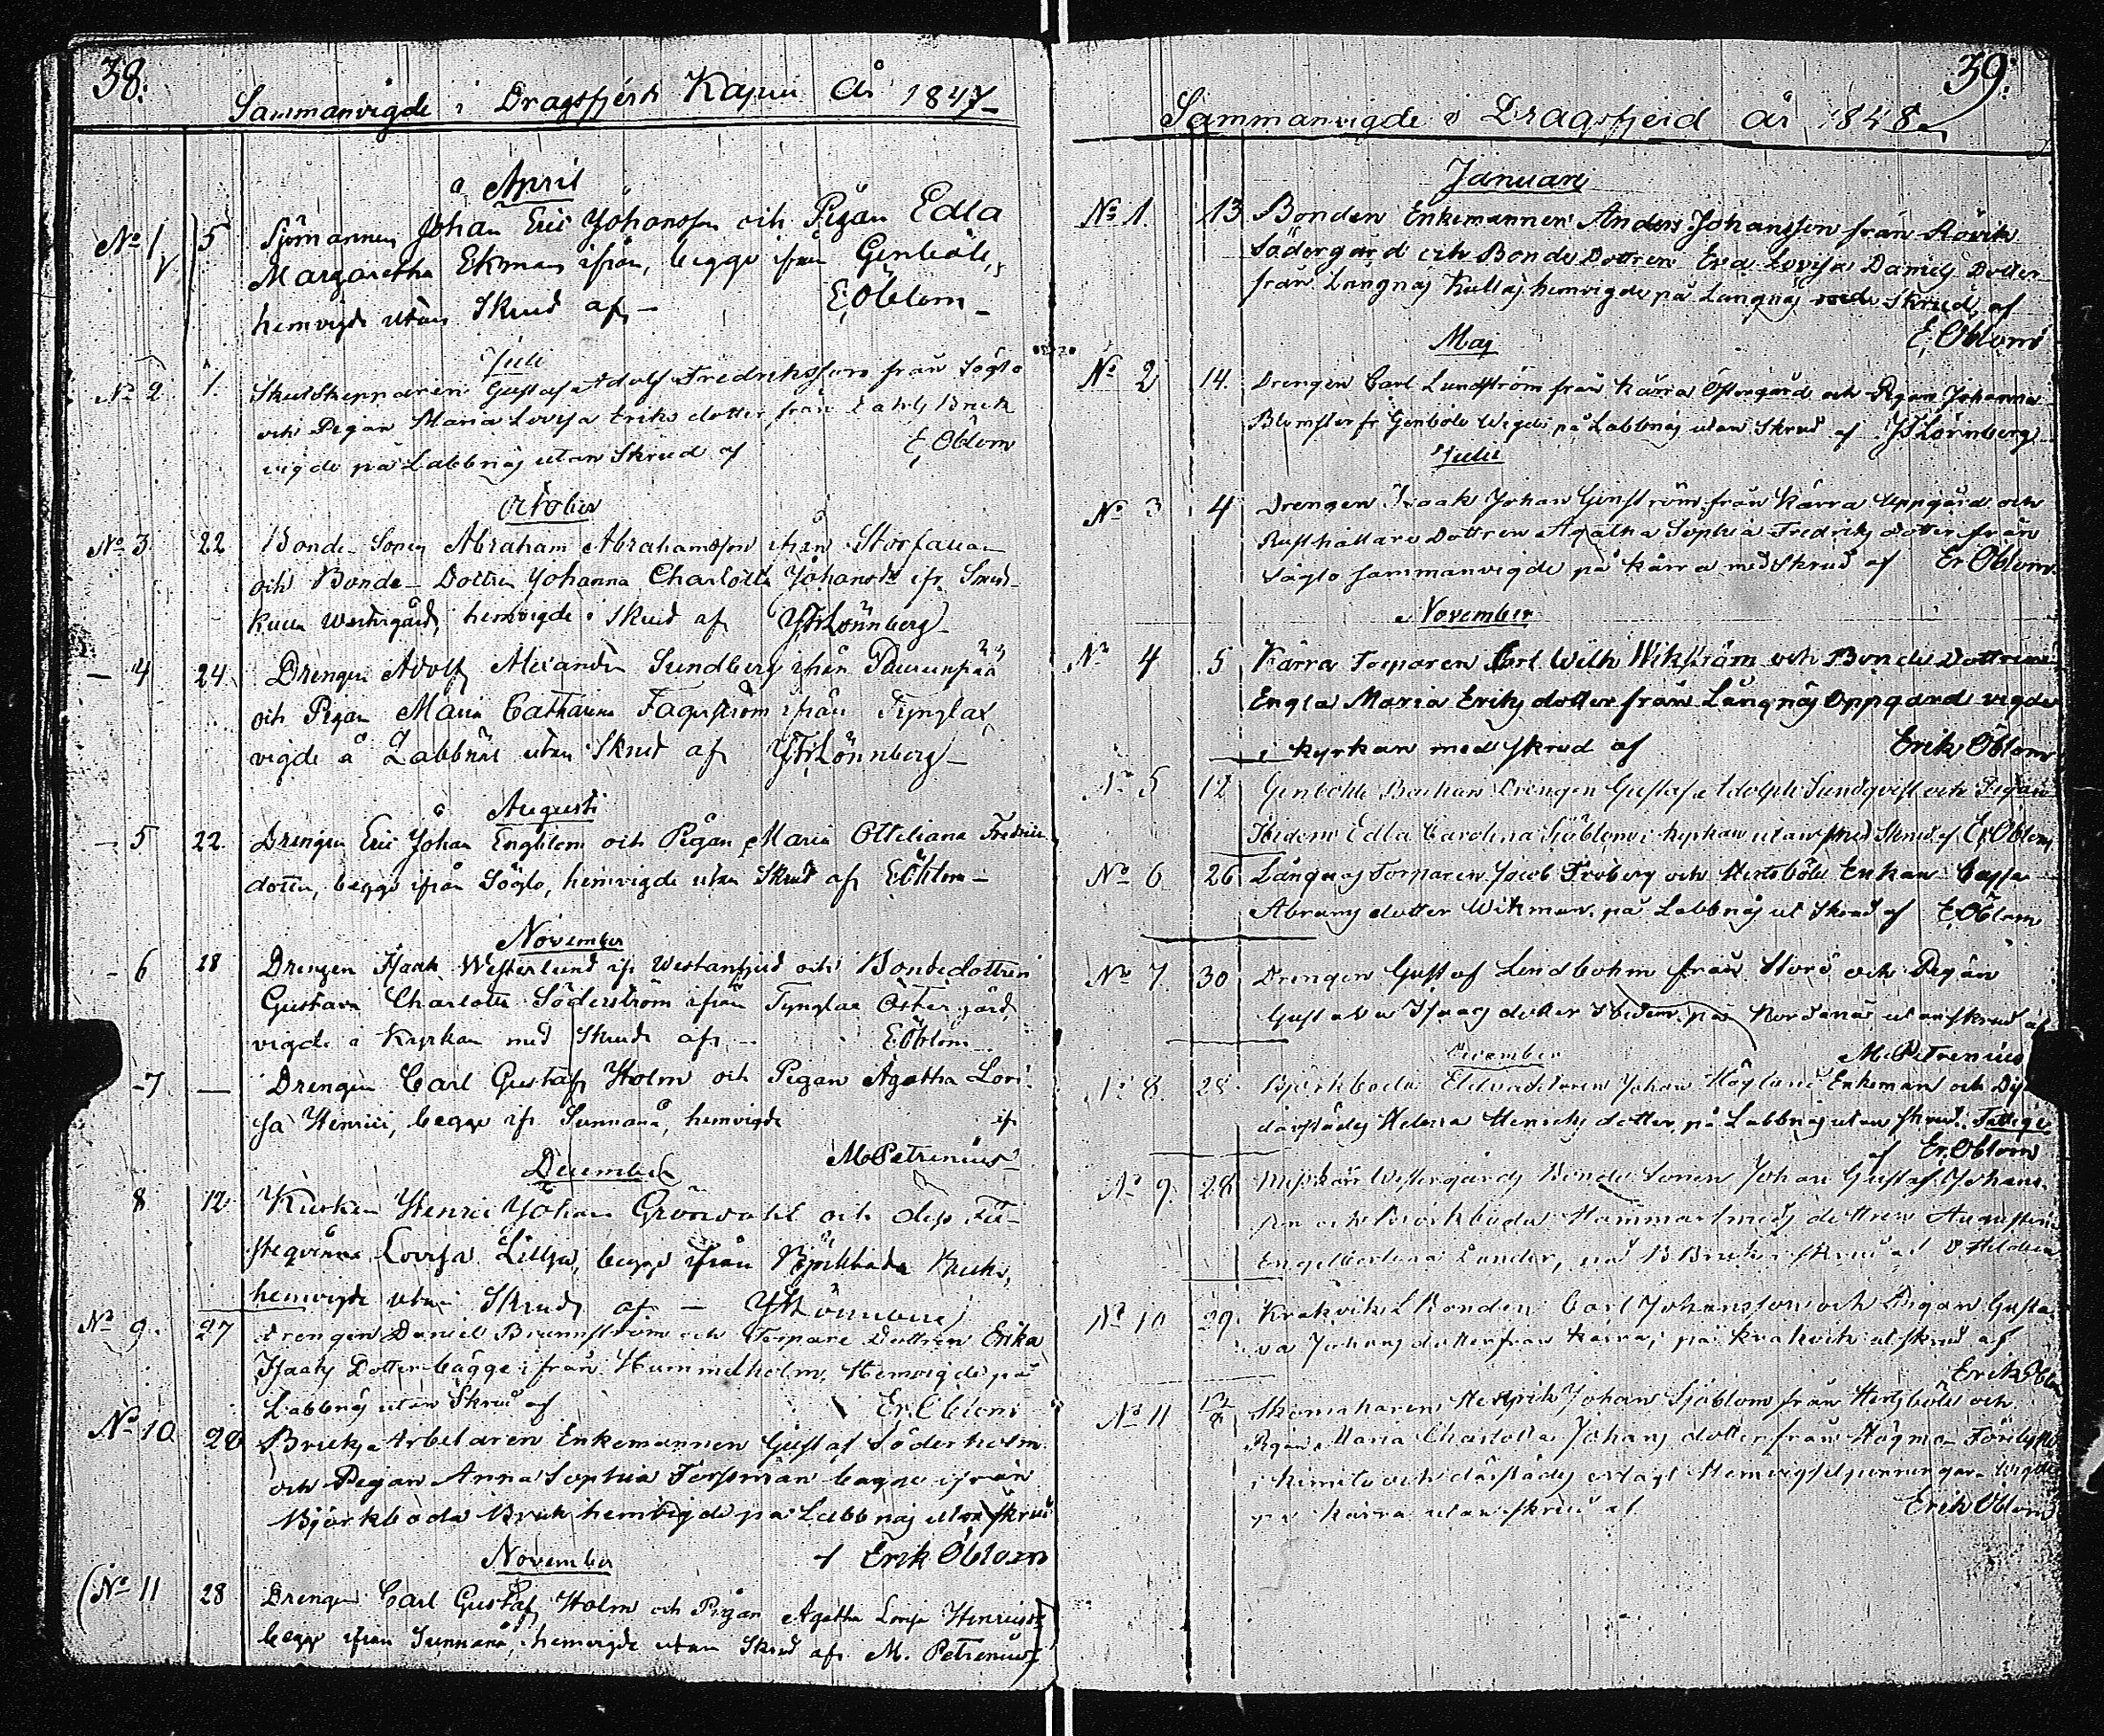 38.
Sammanvigde i Dragsfjerds Kapell År 1847
April
No 1 5 Sjömannen Johan Eric Johansson och Pigan Edla
Margaretha Ekman ifrån, begge ifrån Genböle,
hemvigde utan Skrud af E. Öblom
Juli
No 2 1. Skutskepparen Gustaf Adolf Fredriksson från Söglo
och Pigan Maria Lovisa Eriksdotter från Dahls Bruk
vigde på Labbnäs utan Skrud af E. Öblom
October
No 3 22 Bonde Sonen Abraham Abrahamsson ifrån Storfanan
och Bonde-Dottren Johanna Charlotta Johansdr ifr
Kulla Westergård, hemvigde i Skrud af Lönnberg
4 24 Drengen Adolf Alexander Sundberg ifrån
och Pigan Maria Catharina Fagerström ifrån Tynglax,
vigde å Labbnäs utan Skrud af Lönnberg
Augusti
5 22 Drengen Eric Johan Engblom och Pigan Maria Ottiliana Fredrics
dotter, begge ifrån Söglo, hemvigde utan Skrud af E Öblom
November
6 28 Drengen Isaak Westerlund ifr Westanfjerd och Bondedottren
Gustava Charlotta Söderström ifrån Tynglax Östergård,
vigde i Kyrkan med Skrud af E Öblom
7 — Drengen Carl Gustaf Holm och Pigan Agatha Lovi-
sa Henrici, begge ifr Sunnanå, hemvigde af
M. Petrenius
December
8 12 Kusken Henric Johan Grönvahl och
qvinna Lovisa Lillja, begge ifrån Björkboda Bruk,
hemvigde utan Skrud af Lönnberg
No 9. 27 Drengen Daniel Brunnström och Torpare Dottren Erika
Isaaks Dotter bägge ifrån Hammelholm, Hemvigde på
Labbnäs utan Skrud af Er. Öblom
No 10 28 Bruks Arbetaren Enkemannen Gustaf Söderholm
och Pigan Anna Sophia Forsman bagge ifrån
Björkboda Bruk hemvigde på Labbnäs utan skrud
af Erik Öblom
November
(No 11 28 Drengen Carl Gustaf Holm och Pigan Agatha Lovisa Henricsdr
begge ifrån Sunnanå, hemvigde utan Skrud af M. Petrenius
39.
Sammanvigde i Dragsfjerd år 1848
Januari
No 1. 13 Bonden Enkemannen Anders Johansson från Rövik
Södergård och Bonde Dottren Eva Lovisa Daniels Dotter
från Långnäs Kullas hemvigde på Långnäs med Skrud, af
E. Öblom
Maj
No 2 14. Drengen Carl Lundström från Kärra Östergård och Pigan Johanna
Blomster fr Genböle Wigde på Labbnäs utan Skrud af Lönnberg
Julii
No 3 4 Drengen Isaak Johan Genström från Kärra Uppgård och
Rusthållare Dottren Agatha Sophia Fredriks dotter från
Söglo sammanvigde på Kärra med Skrud af Er Öblom
November
No 4 5 Kärra Torparen Carl Wilh Wikström och Bonde Dottren
Engla Maria Eriks dotter från Långnäs Oppgård vigde
i Kyrkan med skrud af Erik Öblom
No 5 12 Genböle Backan Drengen Gustaf Adolph Sundqvist och Pigan
Ibidem Edla Carolina Sjöblom i kyrkan utan Skrud af Er Öblom
No 6 26 Långnäs Torparen Jacob Fröberg och Hertsböle Enkan Cajsa
Abrams dotter Wikman, på Labbnäs ut Skrud af E. Öblom
No 7. 30 Drengen Gustaf Lindbohm från Storö och Pigan
Gustava Isaacs dotter Ibidem, på Nordanå utan skrud af
M. Petrenius
December
No 8. 28. Björkboda Johan Höglund Enkeman och
därstädes Helena Henriks dotter, på Labbnäs utan skrud. Fattige
af Er. Öblom
No 9. 28 Westergårds Bonde Sonen Johan Gustaf Johans-
son och Björkboda Hammarsmeds dottren Augustina
Engelbertina Lander, på B Bruk i skrud af
No 10 29. Krakvik Bonden Carl Johansson och Pigan Gusta-
va Johans dotter från Kärra, på Krakvik ut skrud af
Erik Öblom
No 11 Skomakaren Henrik Johan Sjöblom från Hertsböle och
Pigan Maria Charlotta Johans dotter från Högmo
i Kimito och därstädes erlagt Hemvigselpenningar. Wigde
på Kärra utan skrud af Erik Öblom